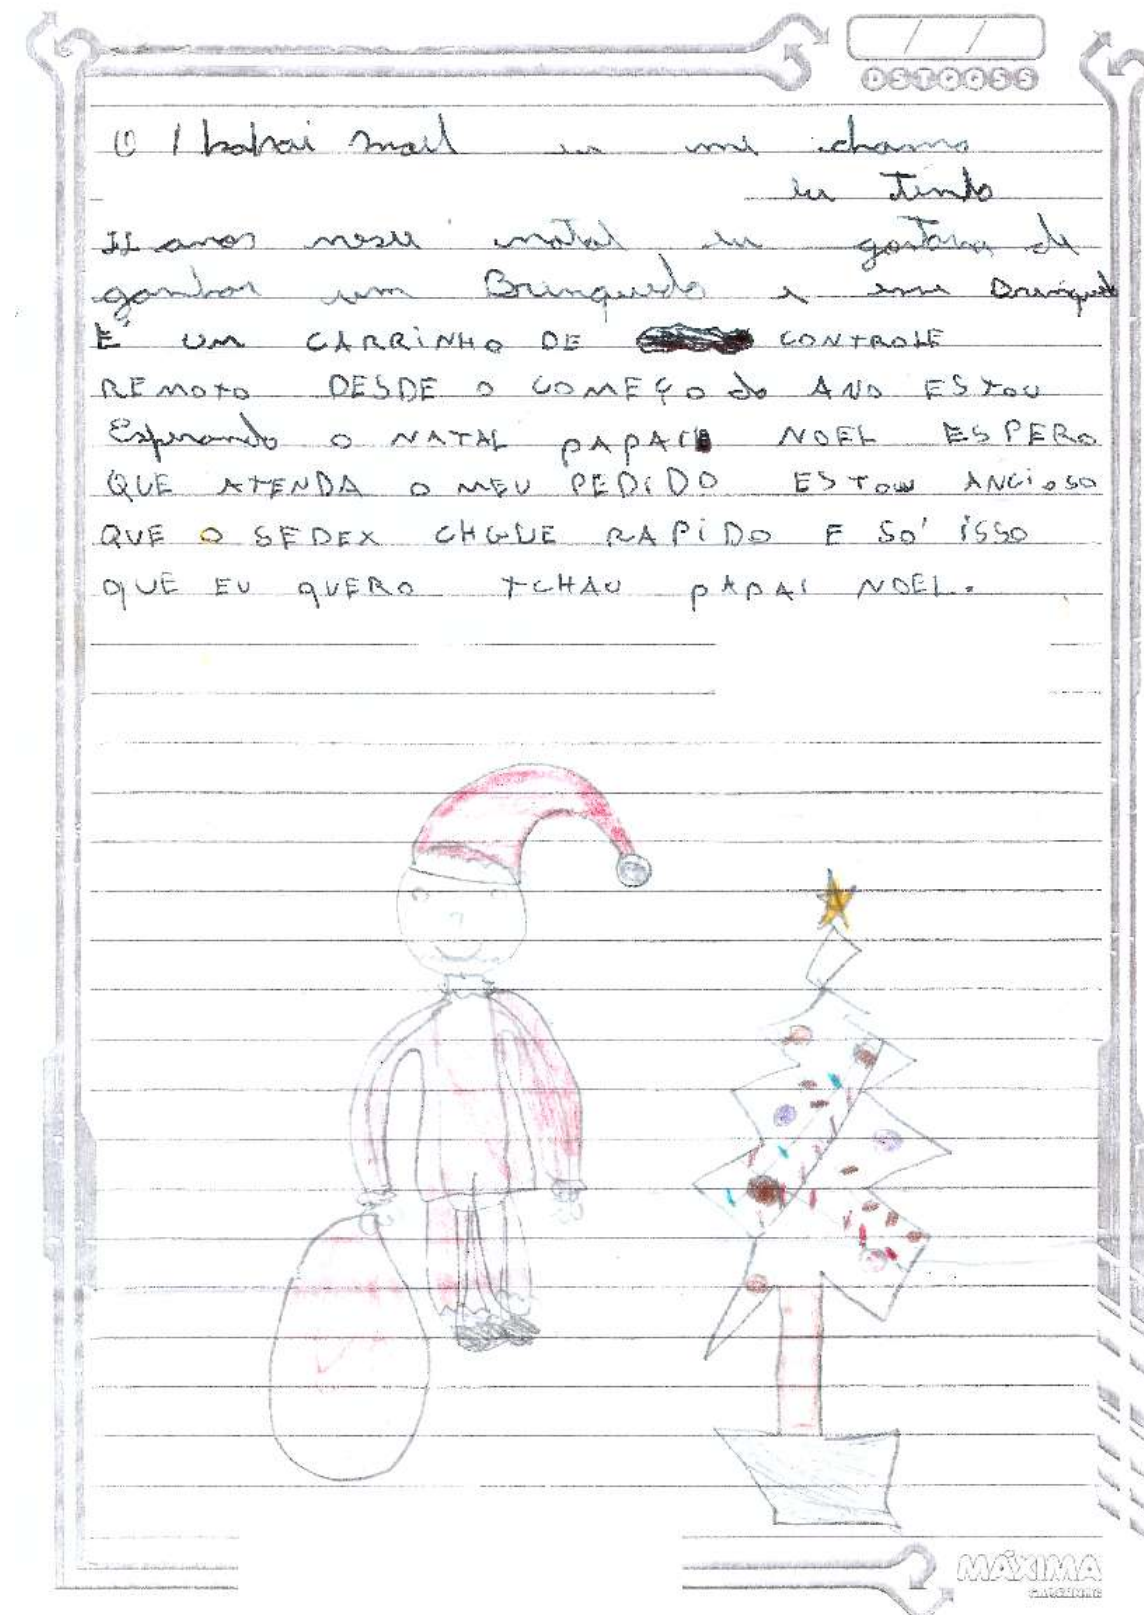 / /
DSTQQSS
O I papai noel eu me chamo
eu Tenho
11 anos nesse natal eu gostaria de
ganhar um Brinquedo e esse Brinquedo
É UM CARRiNHO DE CONTROLE
REMOTO DESDE O COMEÇO do ANO ESTOU
Esperando O NATAL PAPAI NOEL ESPERO
QUE ATENDA O MEU PEDiDO ESTOU ANCioSO
QUE O SEDEX CHGUE RAPiDO E SO' iSSO
QUE EU QUERO TCHAU PAPAI NOEL.
MÁXIMA